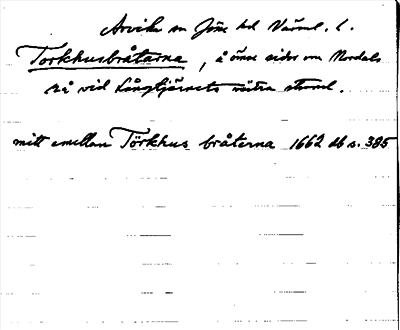 Arvika sn Jösse hd Värml. l.
Torkhusbråtarna, å ömse sidor om Nordals
rå vid Långtjärnets västra strand.
mitt emellan Törkhus bråterna 1662 db s. 385